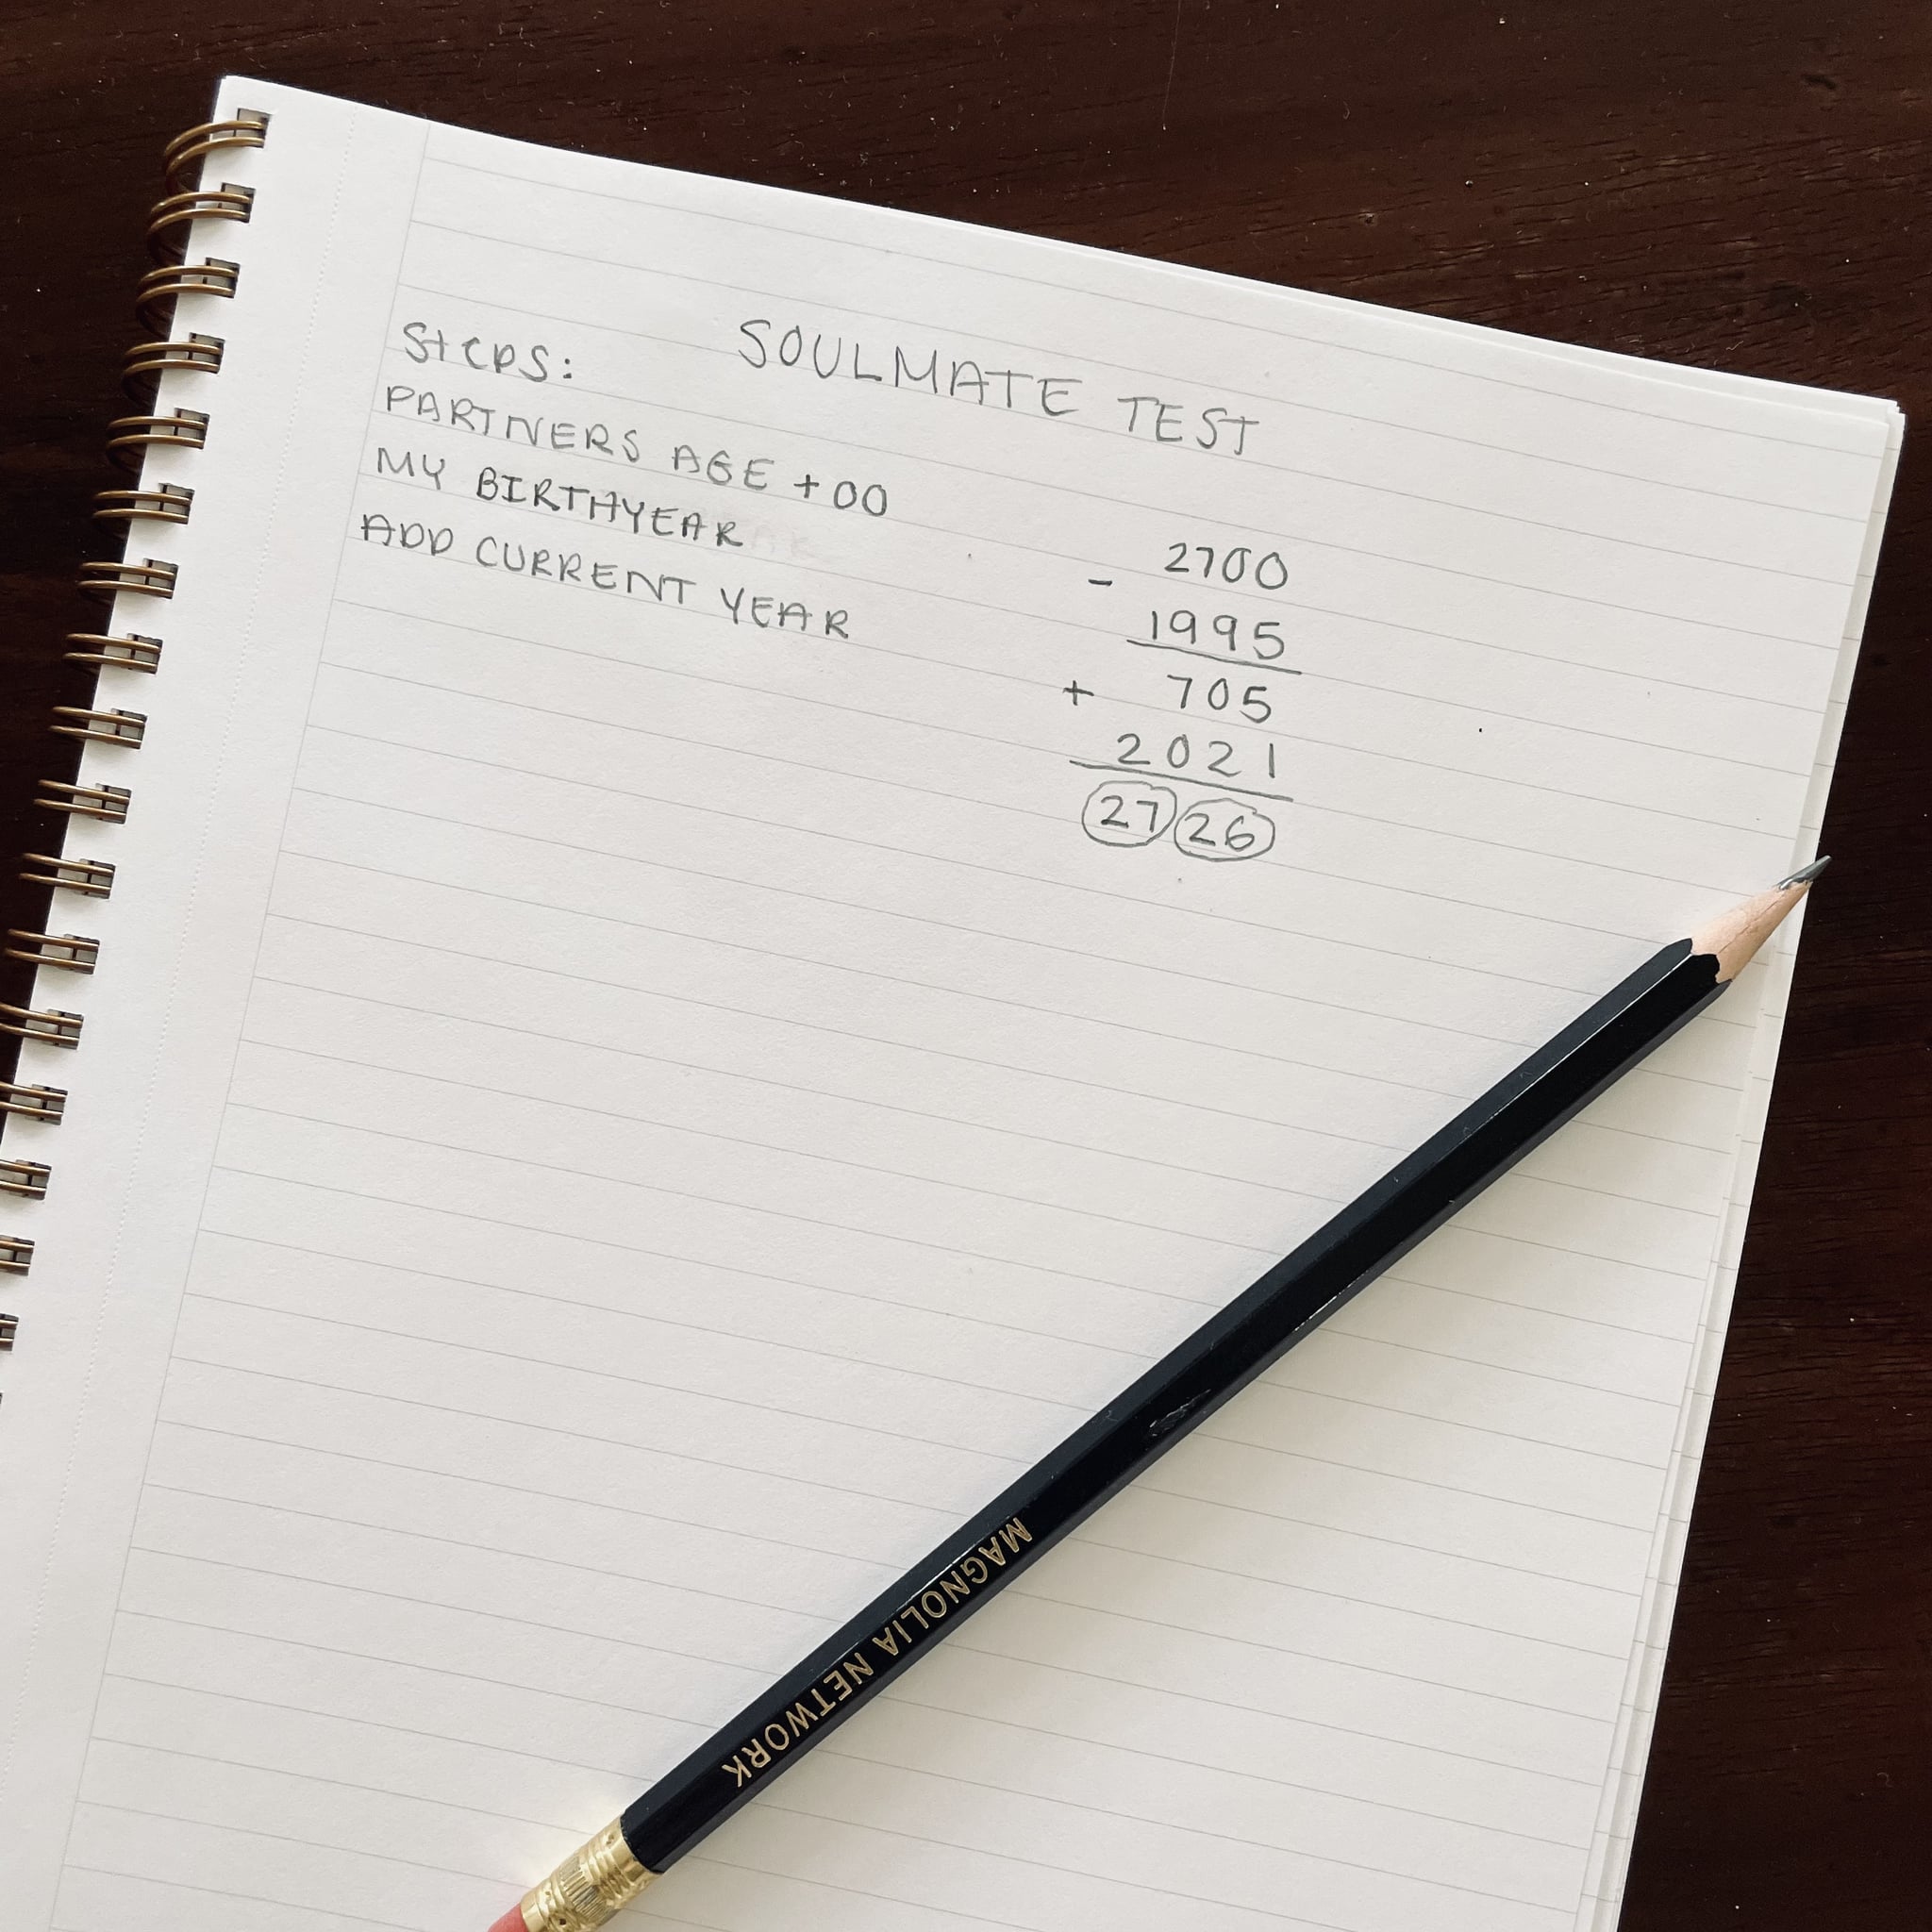 SOULMATE TEST
Steps:
PARTNERS AGE +00
MY BIRTHYEAR
ADD CURRENT YEAR
- 2700
1995
+ 705
2021
2726
MAGNOLIA NETWORK